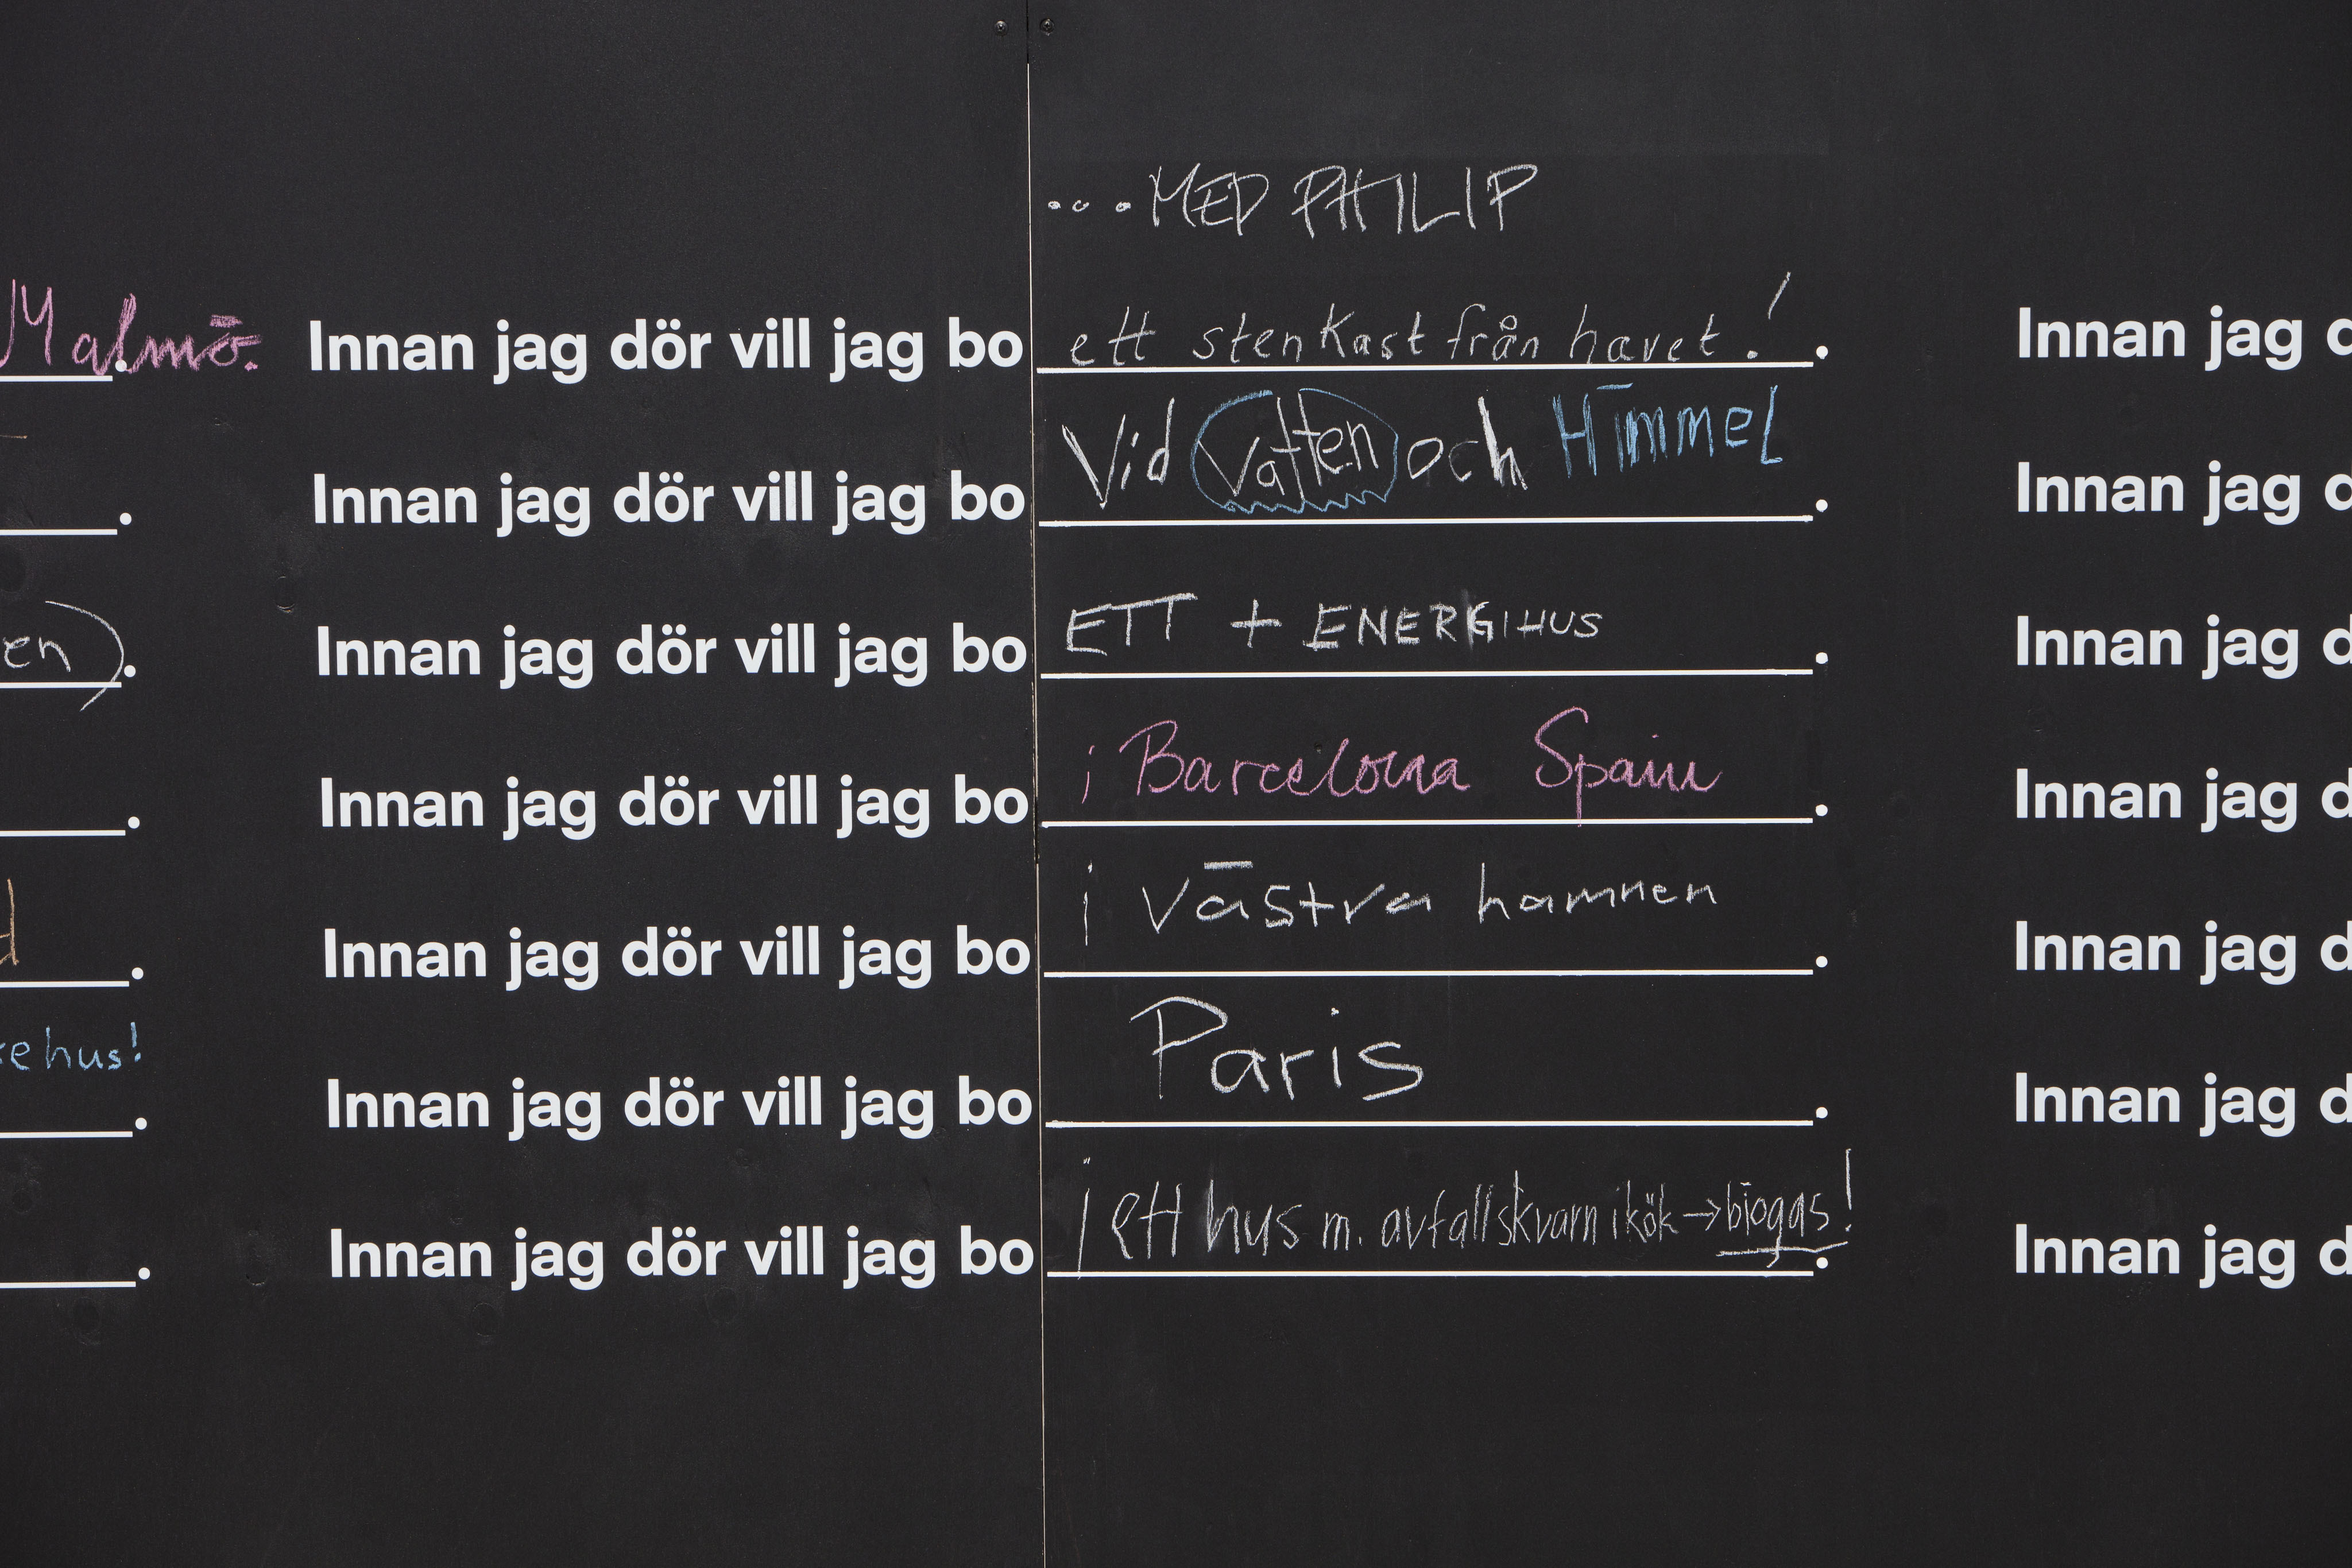 ...MED PHILIP
Malmö. Innan jag dör vill jag bo ett stenkast från havet! . Innan jag
. Innan jag dör vill jag bo Vid Vatten och Himmel . Innan jag
en). Innan jag dör vill jag bo ETT + ENERGIHUS . Innan jag d
. Innan jag dör vill jag bo i Barcelona Spain . Innan jag d
d . Innan jag dör vill jag bo i Västra hamnen . Innan jag d
ehus! . Innan jag dör vill jag bo Paris . Innan jag d
. Innan jag dör vill jag bo i ett hus m. avfallskvarn i kök → biogas! . Innan jag d